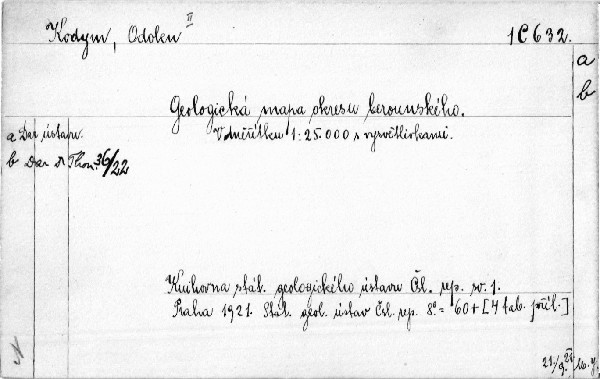 Kodym, Odolen II
1C632.
a
b
Geologická mapa okresu berounského.
V měřítku 1:25.000 s vysvětlivkami.
a Dar ústavu.
b Dar Dr Thon. 36/22
Knihovna stát. geologického ústavu Čsl. rep. sv. 1.
Praha 1921. Stát. geol. ústav Čsl. rep. 8º = 60+[4 tab. příl.]
21/9. 21